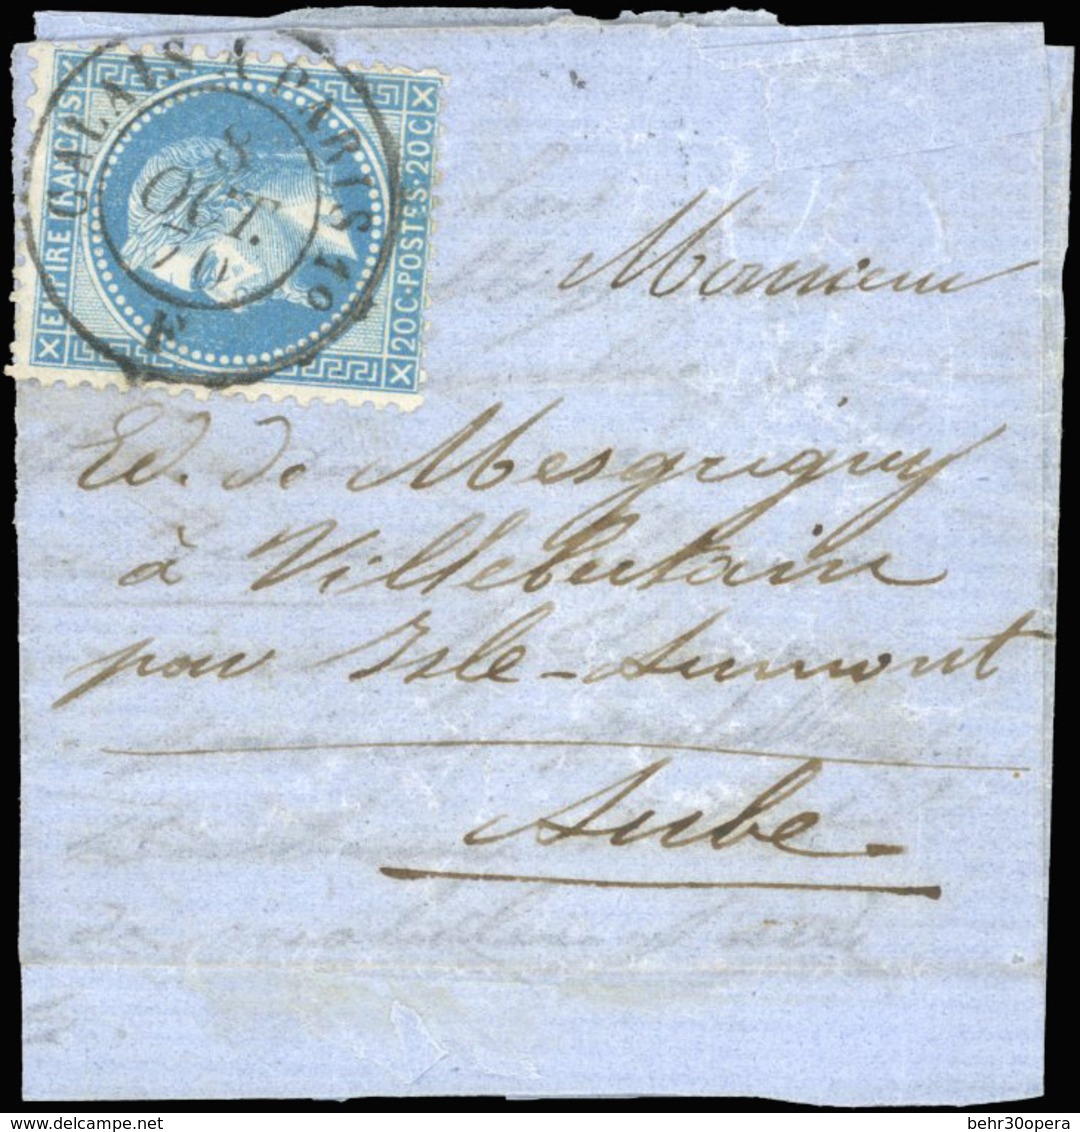 EMPIRE FRANÇAIS
20 C·POSTES·20 C
CALAIS A PARIS 1o
8
OCT.
70
F
Monsieur
Ed. de Mesgrigny
à Villebertain
par Isle-Aumont
Aube
behr30opera